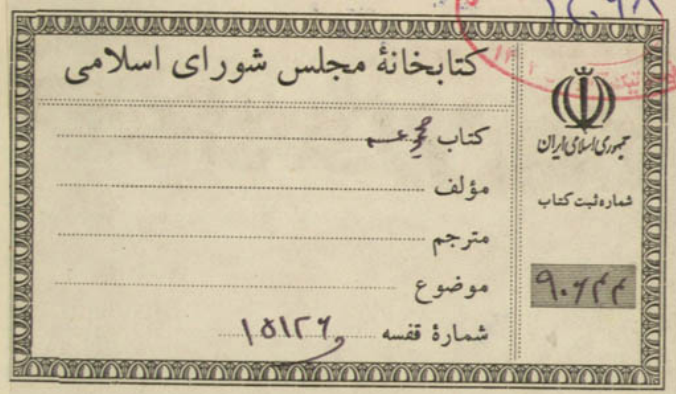 کتابخانهٔ مجلس شورای اسلامی
کتاب
مؤلف
مترجم
موضوع
شمارهٔ قفسه ۱۵۱۲۶
جمهوری اسلامی ایران
شماره ثبت کتاب
۹۰۶۴۴